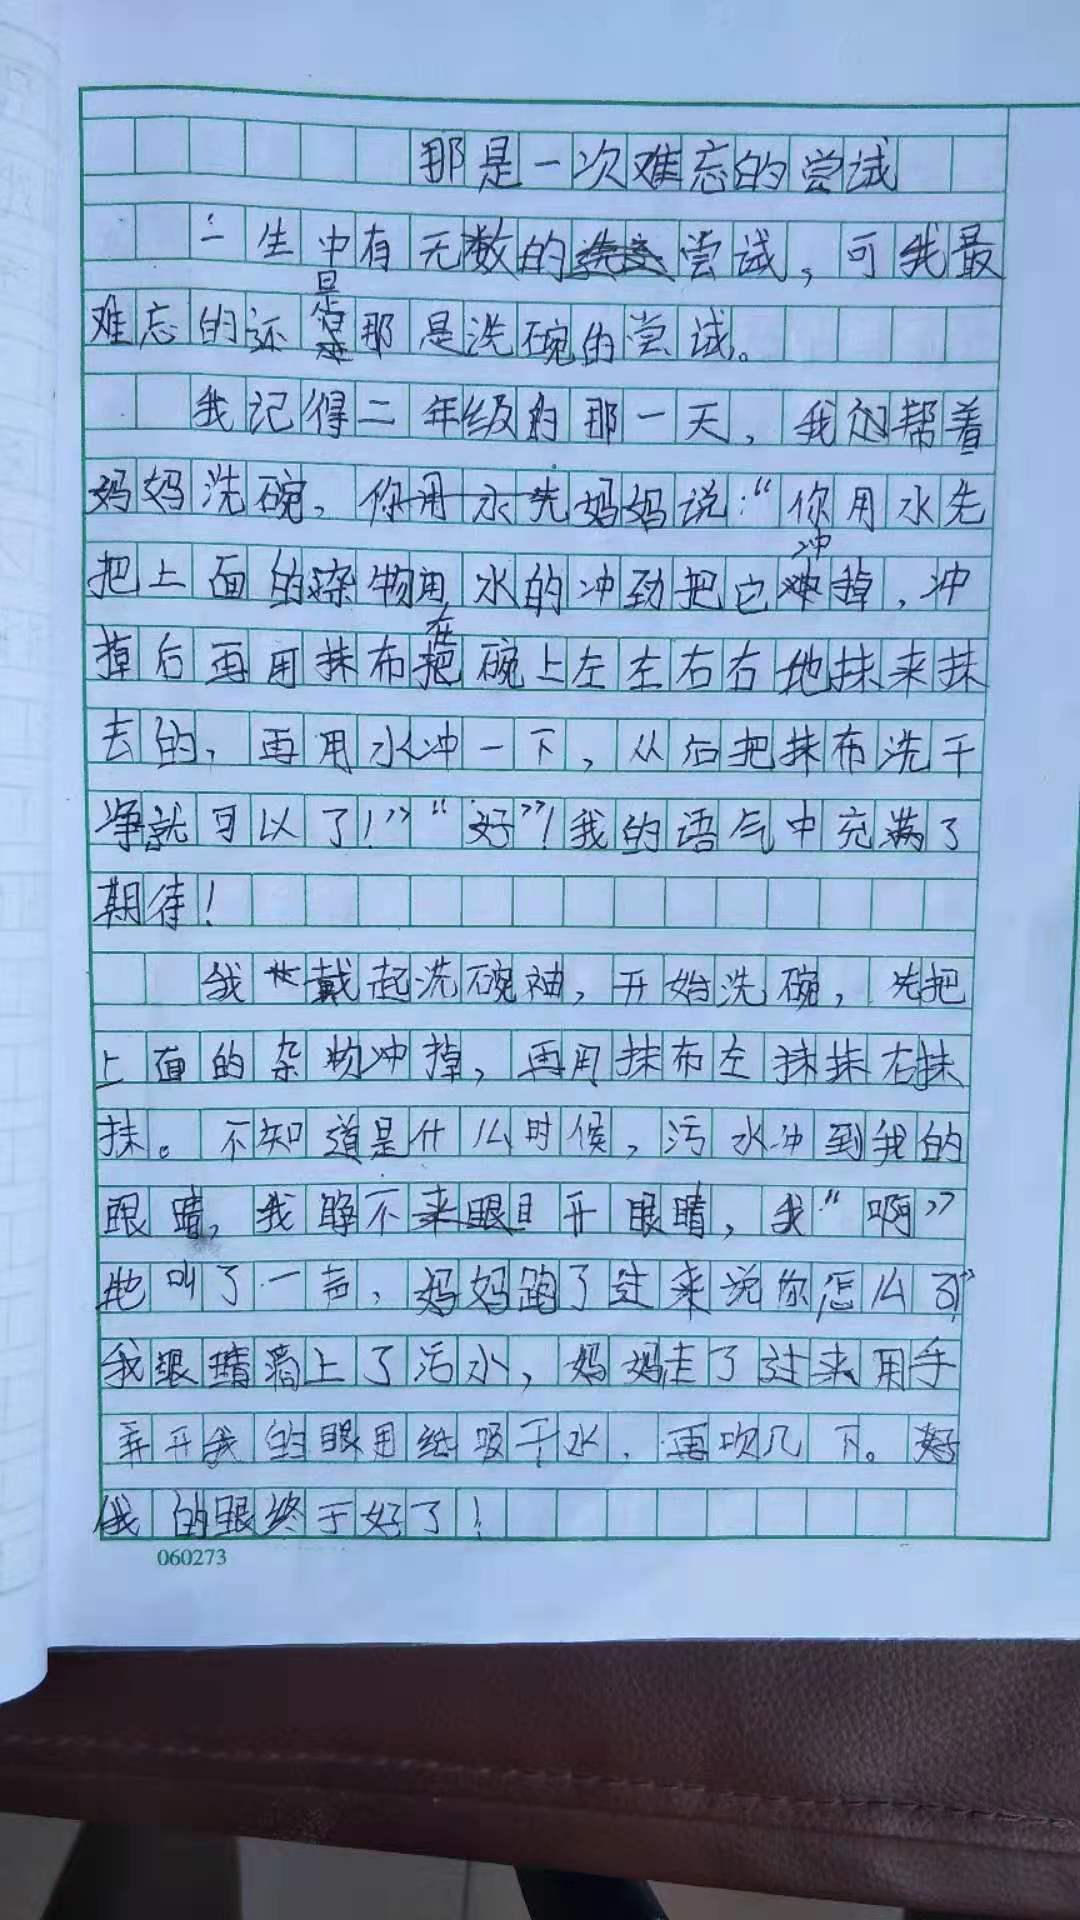 那是一次难忘的尝试
一生中有无数的尝试，可我最
难忘的还是那是洗碗的尝试。
我记得二年级的那一天，我帮着
妈妈洗碗，妈妈说：“你用水先
把上面的杂物用水的冲劲把它冲掉，冲
掉后再用抹布在碗上左左右右地抹来抹
去的，再用水冲一下，从后把抹布洗干
净就可以了！”“好”！我的语气中充满了
期待！
我戴起洗碗袖，开始洗碗，先把
上面的杂物冲掉，再用抹布左抹抹右抹
抹。不知道是什么时候，污水冲到我的
眼睛，我睁不开眼睛，我“啊”
地叫了一声，妈妈跑了过来说你怎么了”
我眼睛滴上了污水，妈妈走了过来用手
弄开我的眼用纸吸干水，再吹几下。
我的眼终于好了！
060273